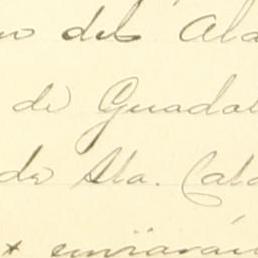 del Ala
de Guadal
de Sta. Cata
* enviarán